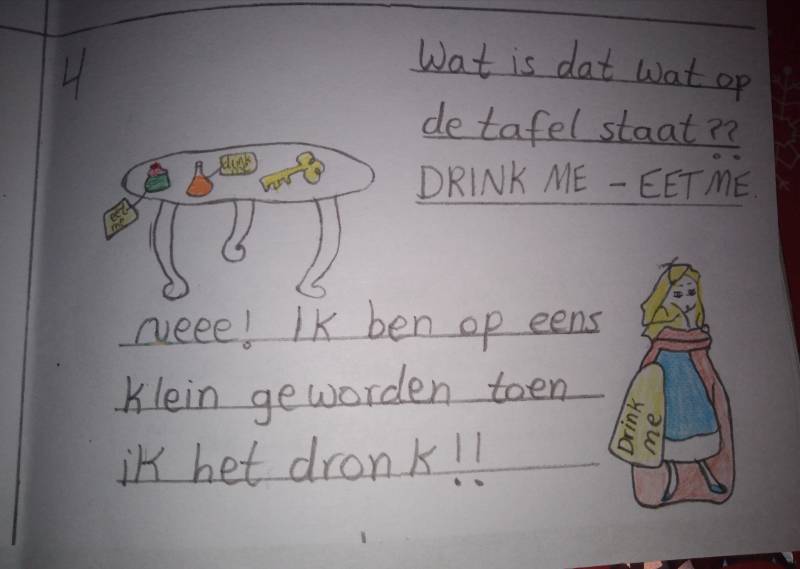 4
Wat is dat wat op
de tafel staat??
DRINK ME - EET ME.
eet
me
drink
me
Neee! Ik ben op eens
klein geworden toen
ik het dronk!!
Drink
me